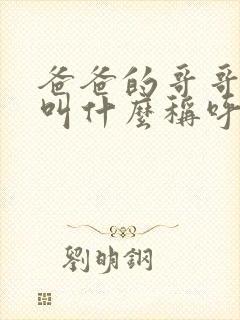 爸爸的哥哥
叫什麼稱呼
劉明鋼